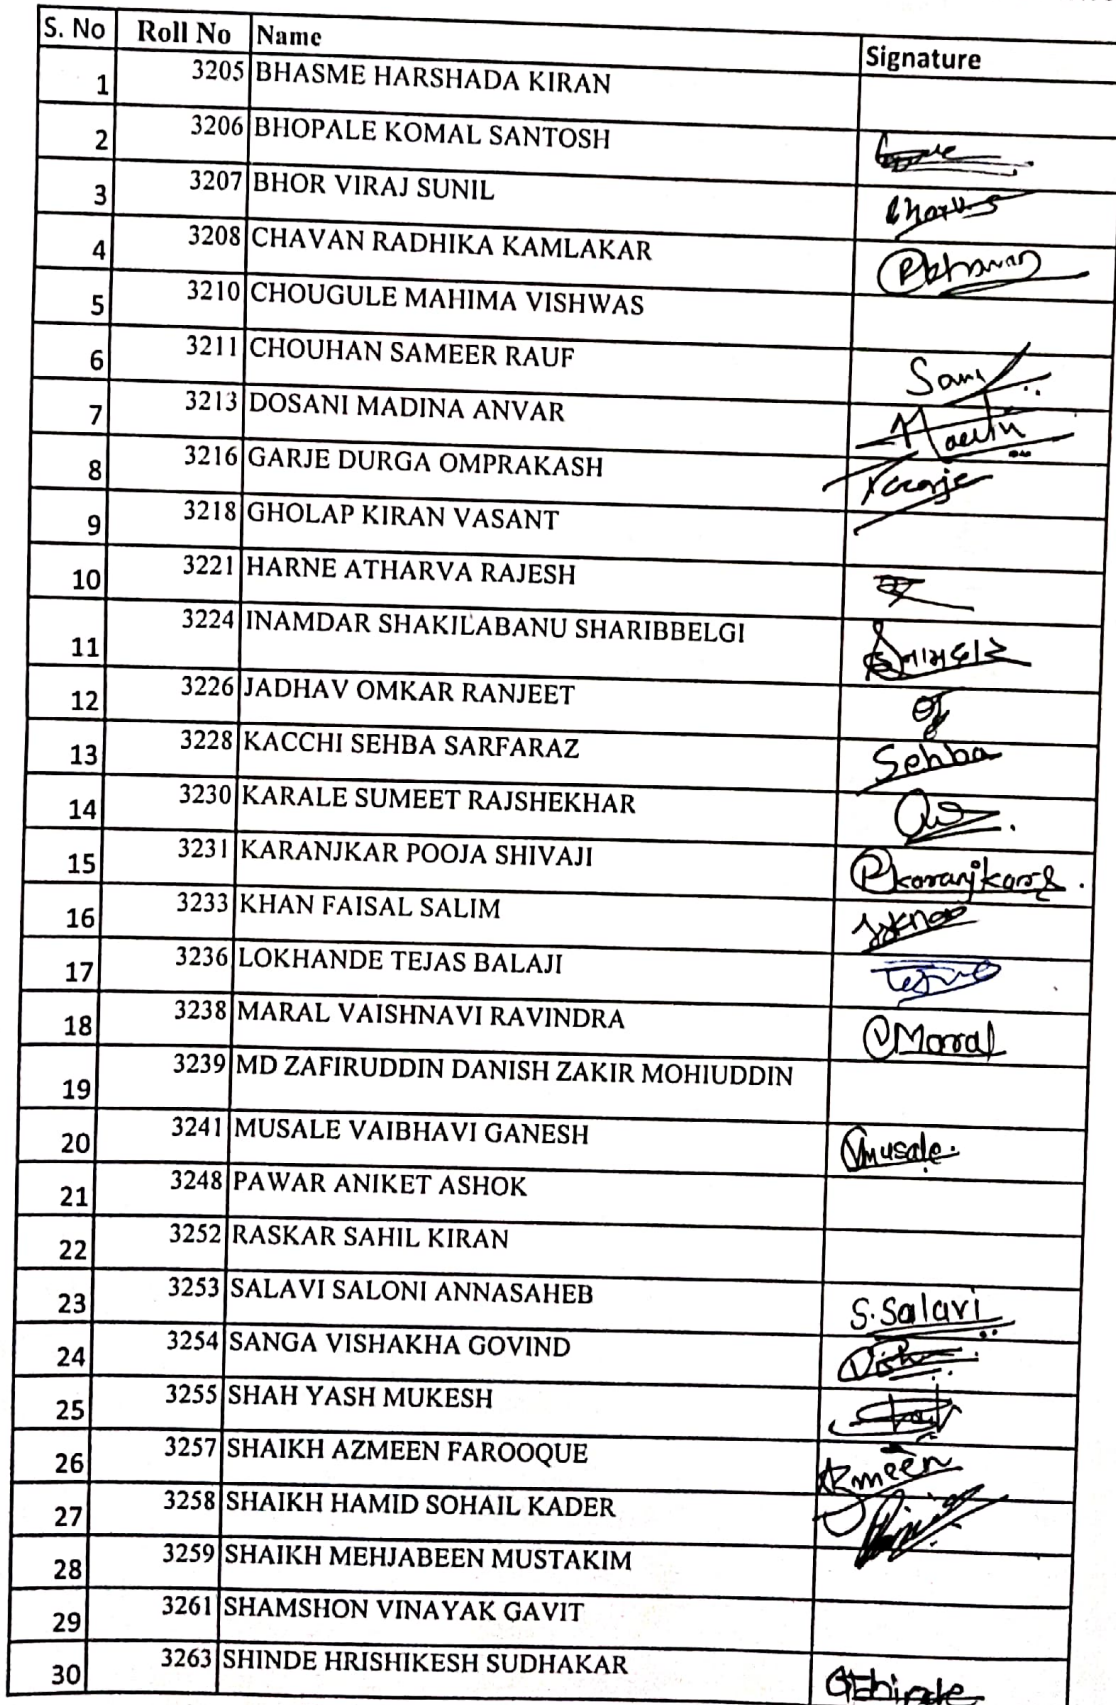 S. No Roll No Name Signature
1 3205 BHASME HARSHADA KIRAN
2 3206 BHOPALE KOMAL SANTOSH
3 3207 BHOR VIRAJ SUNIL
4 3208 CHAVAN RADHIKA KAMLAKAR
5 3210 CHOUGULE MAHIMA VISHWAS
6 3211 CHOUHAN SAMEER RAUF
7 3213 DOSANI MADINA ANVAR
8 3216 GARJE DURGA OMPRAKASH
9 3218 GHOLAP KIRAN VASANT
10 3221 HARNE ATHARVA RAJESH
11 3224 INAMDAR SHAKILABANU SHARIBBELGI
12 3226 JADHAV OMKAR RANJEET
13 3228 KACCHI SEHBA SARFARAZ Sehba
14 3230 KARALE SUMEET RAJSHEKHAR
15 3231 KARANJKAR POOJA SHIVAJI
16 3233 KHAN FAISAL SALIM
17 3236 LOKHANDE TEJAS BALAJI
18 3238 MARAL VAISHNAVI RAVINDRA VMaral
19 3239 MD ZAFIRUDDIN DANISH ZAKIR MOHIUDDIN
20 3241 MUSALE VAIBHAVI GANESH Vmusale.
21 3248 PAWAR ANIKET ASHOK
22 3252 RASKAR SAHIL KIRAN
23 3253 SALAVI SALONI ANNASAHEB S.Salavi
24 3254 SANGA VISHAKHA GOVIND
25 3255 SHAH YASH MUKESH
26 3257 SHAIKH AZMEEN FAROOQUE Azmeen
27 3258 SHAIKH HAMID SOHAIL KADER
28 3259 SHAIKH MEHJABEEN MUSTAKIM
29 3261 SHAMSHON VINAYAK GAVIT
30 3263 SHINDE HRISHIKESH SUDHAKAR